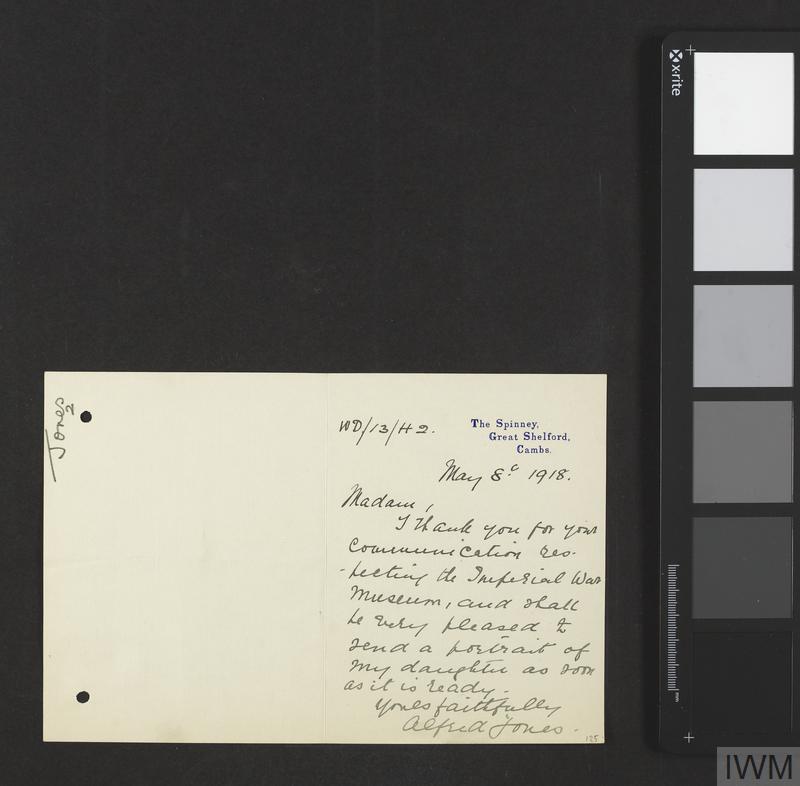 Jones
2
WD/13/H2.
The Spinney,
Great Shelford,
Cambs.
May 8th 1918.
Madam,
I thank you for your
communication res-
-pecting the Imperial War
Museum, and shall
be very pleased to
send a portrait of
my daughter as soon
as it is ready.
Yours faithfully
Alfred Jones.
125
x-rite
mm
IWM